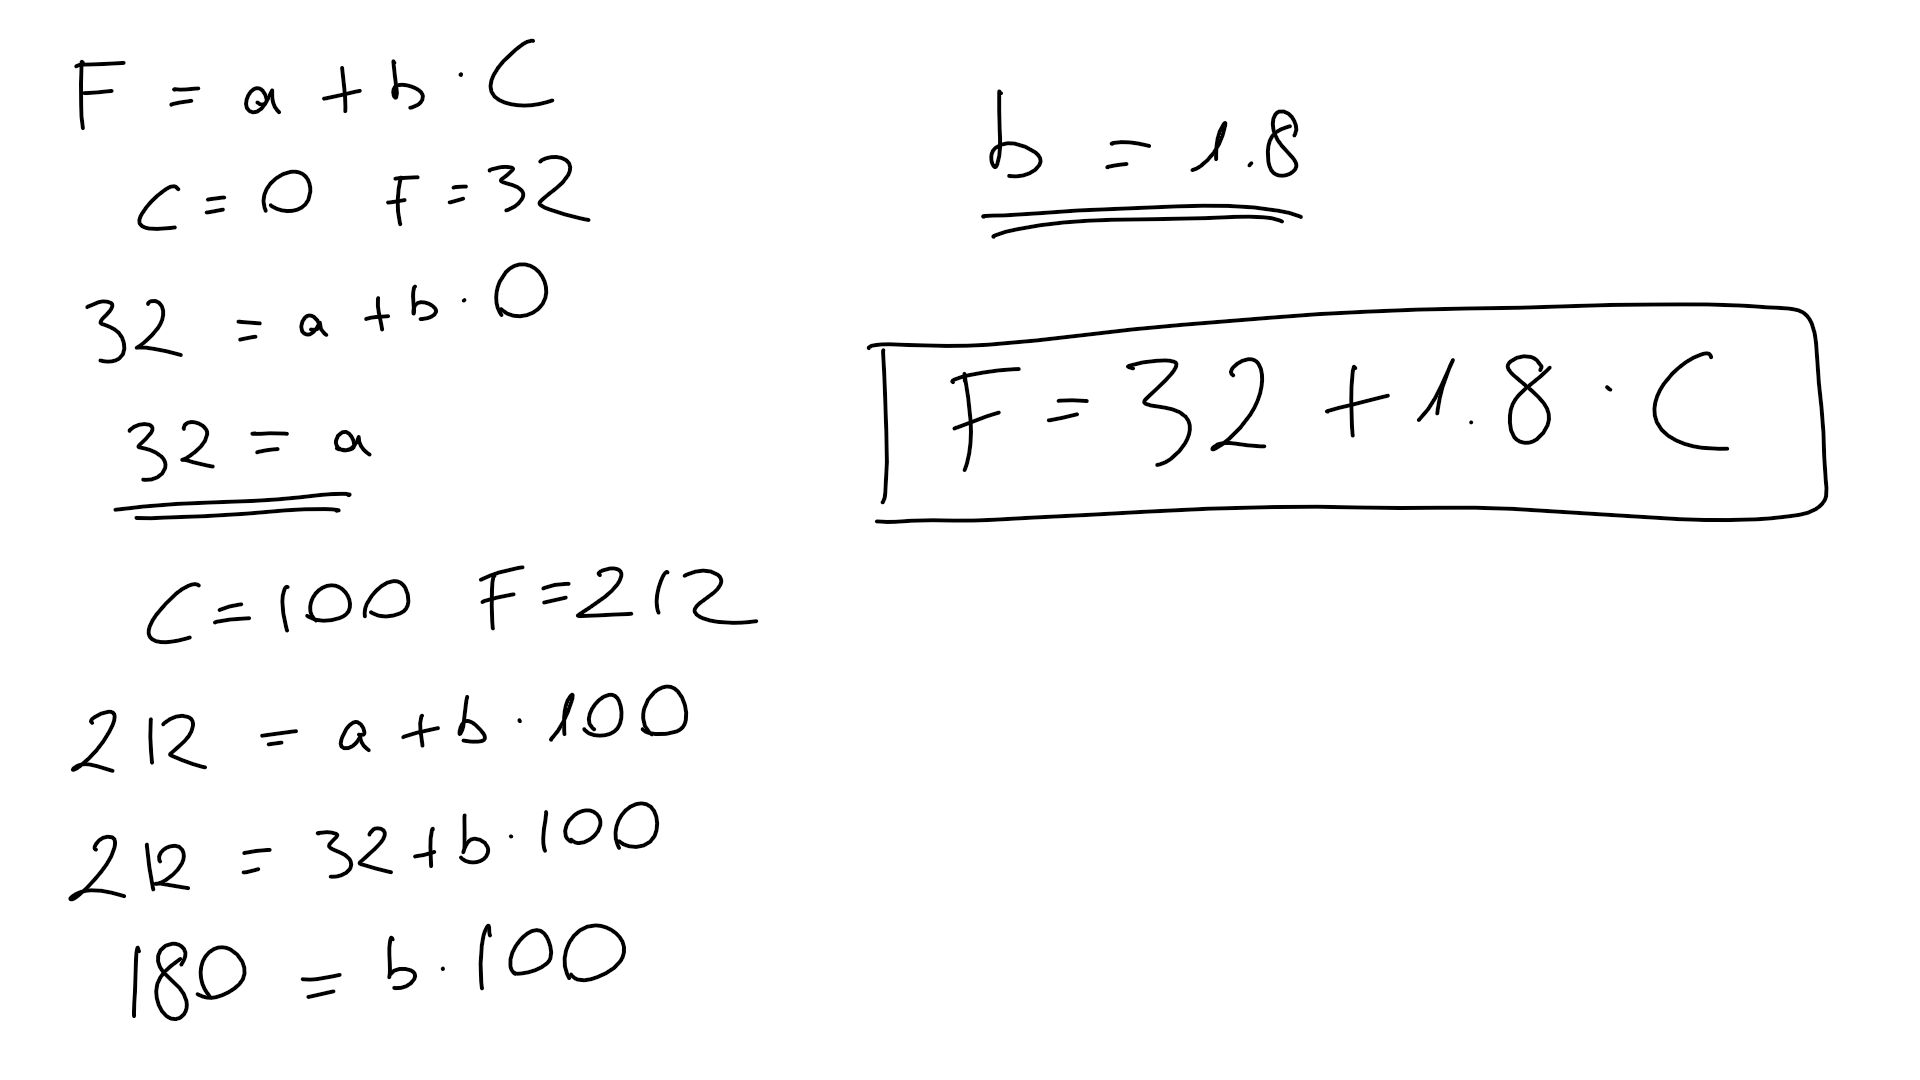 F = a + b · C
C = 0 F = 32
32 = a + b · 0
32 = a
C = 100 F = 212
212 = a + b · 100
212 = 32 + b · 100
180 = b · 100
b = 1.8
F = 32 + 1.8 · C